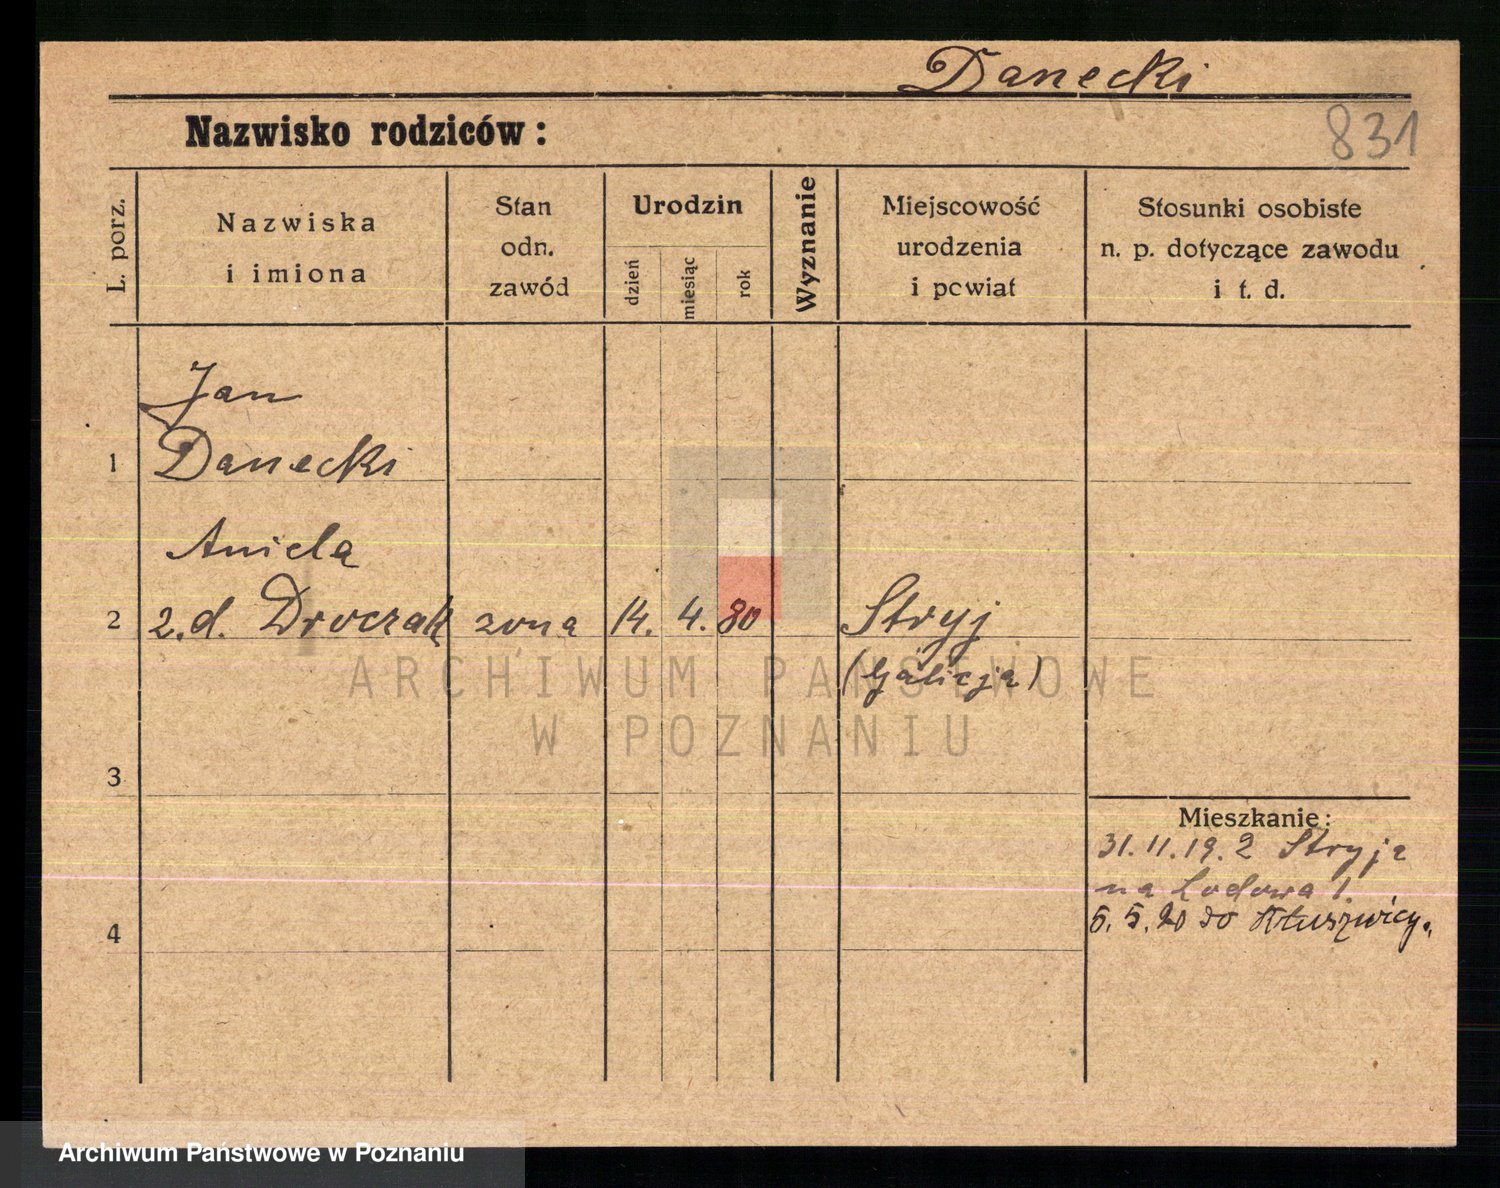 Danecki
831
Nazwisko rodziców :
L. porz.
Nazwiska
i imiona
Stan
odn.
zawód
Urodzin
dzień
miesiąc
rok
Wyznanie
Miejscowość
urodzenia
i powiat
Stosunki osobiste
n. p. dotyczące zawodu
i t. d.
Jan
1 Danecki
Aniela
2 z.d. Droczak żona 14. 4. 80 Stryj
(Galicja)
ARCHIWUM PAŃSTWOWE
W POZNANIU
3
Mieszkanie:
31.11.19. z Stryja
na Lodowa 1.
4 5. 5. 20 do
Archiwum Państwowe w Poznaniu